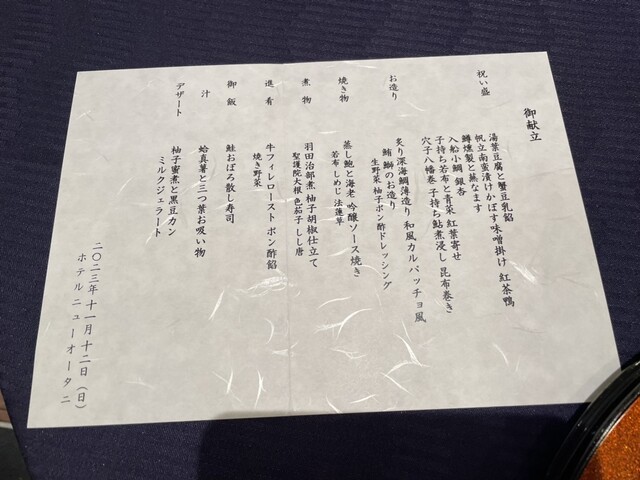 御献立
祝い盛
湯葉豆腐と蟹豆乳餡
帆立南蛮漬けかぼす味噌掛け 紅茶鴨
鱒燻製と蕪なます
入船小鯛 銀杏
子持ち若布と青菜 紅葉寄せ
穴子八幡巻 子持ち鮎煮浸し 昆布巻き
お造り
炙り深海鯛薄造り 和風カルパッチョ風
鮪 鰤のお造り
生野菜 柚子ポン酢ドレッシング
焼き物
蒸し鮑と海老 吟醸ソース焼き
若布 しめじ 法蓮草
煮物
羽田治部煮 柚子胡椒仕立て
聖護院大根 色茄子 しし唐
進肴
牛フィレロースト ポン酢餡
焼き野菜
御飯
鮭おぼろ散し寿司
汁
蛤真薯と三つ葉お吸い物
デザート
柚子蜜煮と黒豆カン
ミルクジェラート
二〇二三年十一月十二日（日）
ホテルニューオータニ